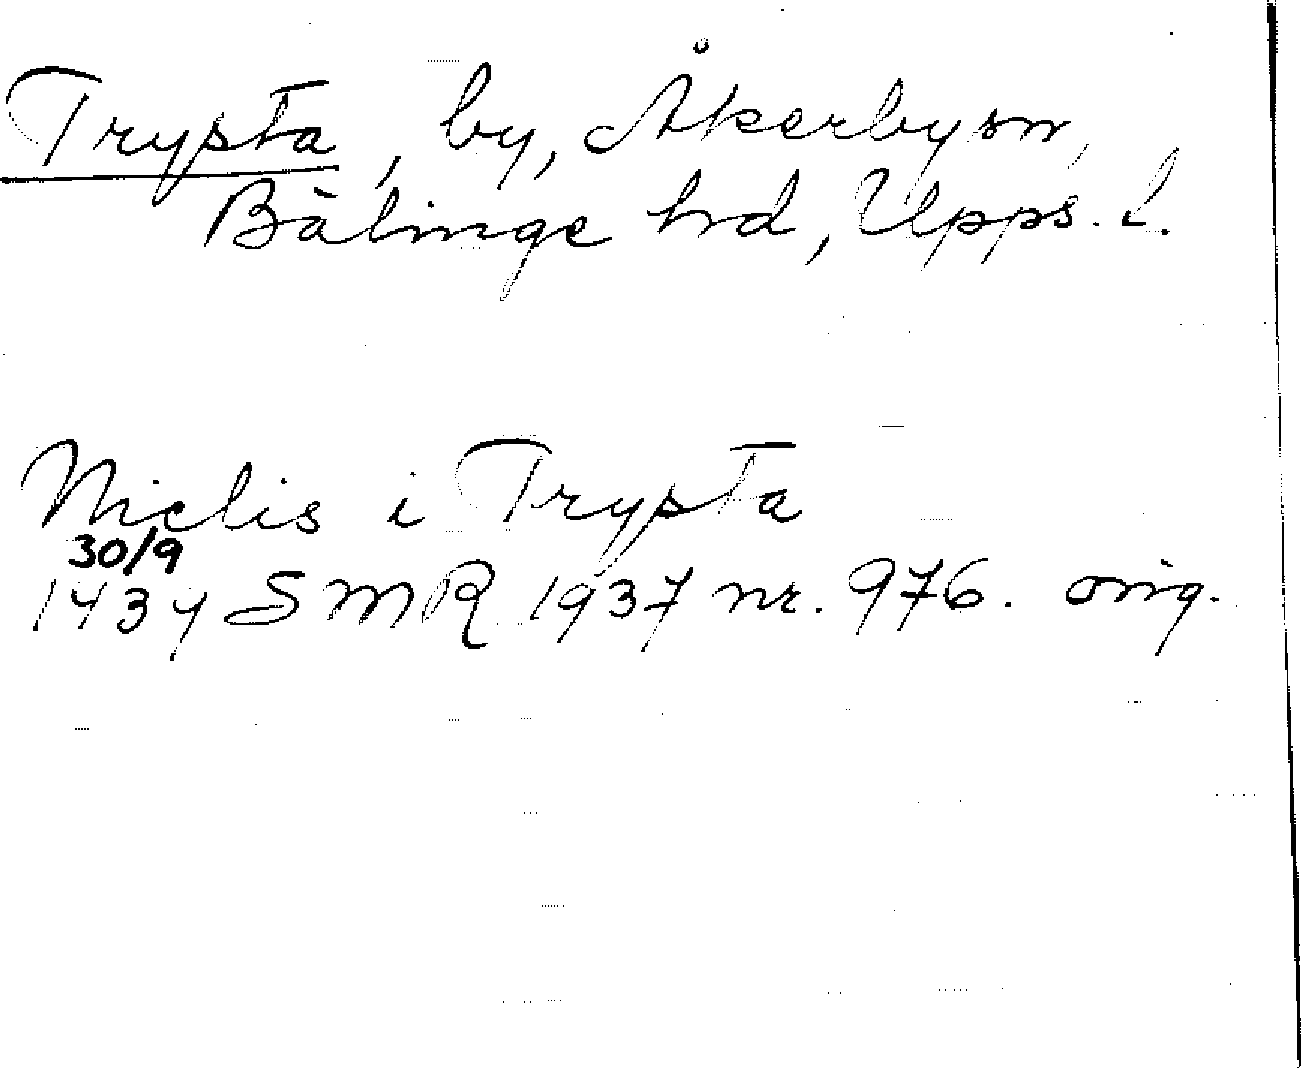 Trysta, by, Åkerby sn,
Bälinge hrd, Upps. l.
Niclis i Trysta
30/9
1434 SMR 1937 nr. 976. orig.